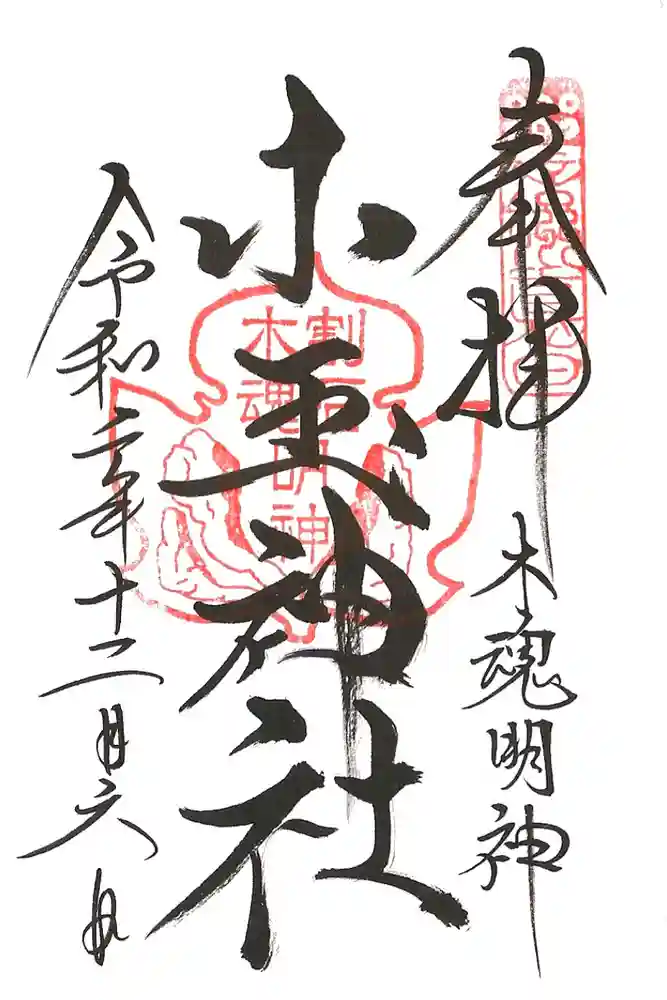 奉拝
木魂明神
木玉神社
令和二年十二月六日
割石
木魂
明神